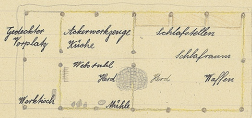 Gedeckter
Vorplatz
Ackerwerkzeuge
Küche
Schlafstellen
Schlafraum
Webstuhl
Herd
Herd
Waffen
Werktisch
Mühle